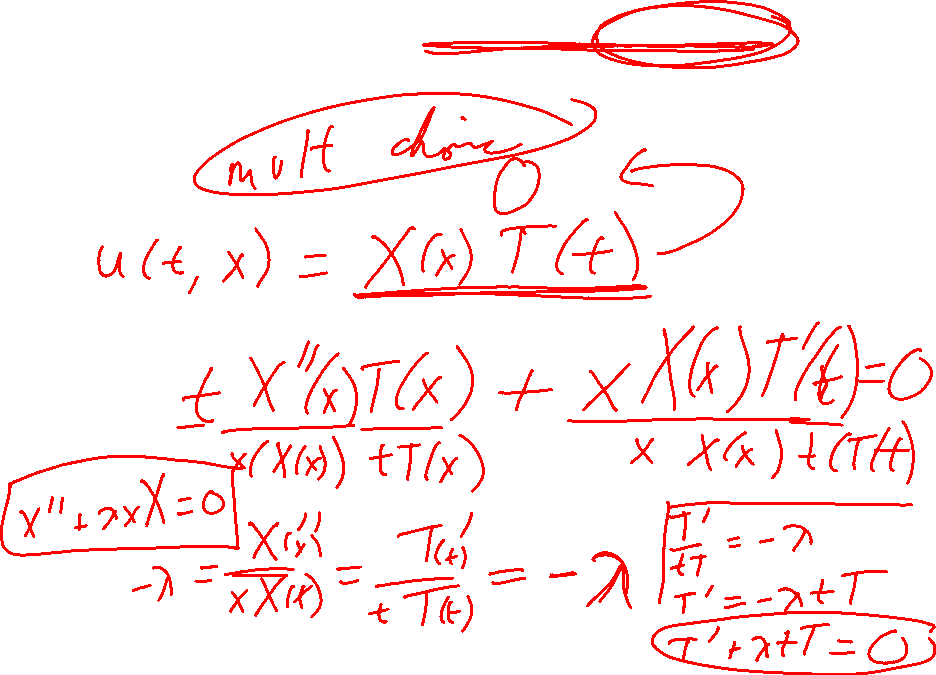 mult choice
0
u(t, x) = X(x) T(t)
t X''(x) T(x) + x X(x) T'(t) = 0
x(X(x)) t T(x) x X(x) t (T(t)
X'' + λxX = 0
-λ = X(x)'' / xX(x) = T(t)' / t T(t) = -λ
T' / tT = -λ
T' = -λtT
T' + λtT = 0